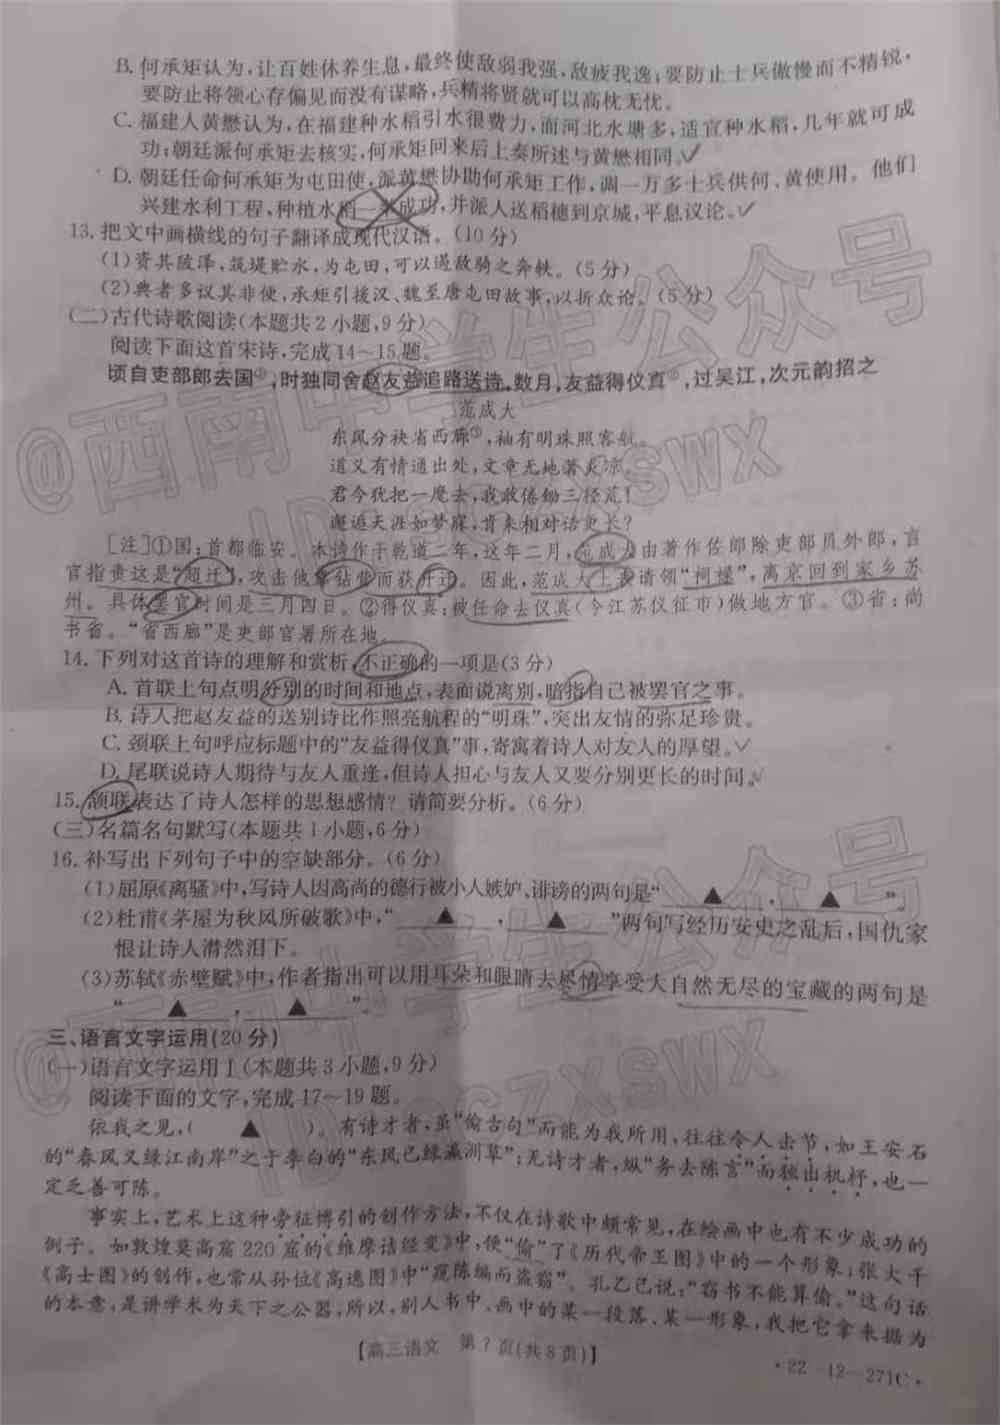 B. 何承矩认为,让百姓休养生息,最终使敌弱我强,敌疲我逸;要防止士兵傲慢而不精锐,
要防止将领心存偏见而没有谋略,兵精将贤就可以高枕无忧。
C. 福建人黄懋认为,在福建种水稻引水很费力,而河北水塘多,适宜种水稻,几年就可成
功;朝廷派何承矩去核实,何承矩回来后上奏所述与黄懋相同。
D. 朝廷任命何承矩为屯田使,派黄懋协助何承矩工作,调一万多士兵供何、黄使用。他们
兴建水利工程,种植水稻一举成功,并派人送稻穗到京城,平息议论。
13. 把文中画横线的句子翻译成现代汉语。(10分)
(1)资其陂泽,筑堤贮水,为屯田,可以遏敌骑之奔轶。(5分)
(2)典者多议其非便,承矩引援汉、魏至唐屯田故事,以折众论。(5分)
(二)古代诗歌阅读(本题共2小题,9分)
阅读下面这首宋诗,完成14~15题。
顷自吏部郎去国①,时独同舍赵友益追路送诗。数月,友益得仪真②,过吴江,次元韵招之
范成大
东风分袂省西廊③,袖有明珠照客航。
道义有情通出处,文章无地著炎凉。
君今犹把一麾去,我敢倦锄三径荒!
邂逅天涯如梦寐,肯来相对话更长?
[注]①国:首都临安。本诗作于乾道二年,这年二月,范成大由著作佐郎除吏部员外郎,言
官指责这是“超迁”,攻击他靠钻营而获升迁。因此,范成大上表请领“祠禄”,离京回到家乡苏
州。具体丢官时间是三月四日。②得仪真:被任命去仪真(今江苏仪征市)做地方官。③省:尚
书省。“省西廊”是吏部官署所在地。
14. 下列对这首诗的理解和赏析,不正确的一项是(3分)
A. 首联上句点明分别的时间和地点,表面说离别,暗指自己被罢官之事。
B. 诗人把赵友益的送别诗比作照亮航程的“明珠”,突出友情的弥足珍贵。
C. 颈联上句呼应标题中的“友益得仪真”事,寄寓着诗人对友人的厚望。
D. 尾联说诗人期待与友人重逢,但诗人担心与友人又要分别更长的时间。
15. 颔联表达了诗人怎样的思想感情?请简要分析。(6分)
(三)名篇名句默写(本题共1小题,6分)
16. 补写出下列句子中的空缺部分。(6分)
(1)屈原《离骚》中,写诗人因高尚的德行被小人嫉妒、诽谤的两句是“▲,▲”。
(2)杜甫《茅屋为秋风所破歌》中,“▲,▲”两句写经历安史之乱后,国仇家
恨让诗人潸然泪下。
(3)苏轼《赤壁赋》中,作者指出可以用耳朵和眼睛去尽情享受大自然无尽的宝藏的两句是
“▲,▲”。
三、语言文字运用(20分)
(一)语言文字运用Ⅰ(本题共3小题,9分)
阅读下面的文字,完成17~19题。
依我之见,(▲)。有诗才者,虽“偷古句”而能为我所用,往往令人击节,如王安石
的“春风又绿江南岸”之于李白的“东风已绿瀛洲草”;无诗才者,纵“务去陈言”而独出机杼,也一
定乏善可陈。
事实上,艺术上这种旁征博引的创作方法,不仅在诗歌中颇常见,在绘画中也有不少成功的
例子。如敦煌莫高窟220窟的《维摩诘经变》中,便“偷”了《历代帝王图》中的一个形象;张大千
《高士图》的创作,也常从孙位《高逸图》中“窥陈编而盗窃”。孔乙己说:“窃书不能算偷。”这句话
的本意,是讲学术为天下之公器,所以,别人书中、画中的某一段落、某一形象,我把它拿来据为
【高三语文 第7页(共8页)】
·22-12-271C·
@西南中学生公众号
ID:GCZXSWX
@西南中学生公众号
ID:GCZXSWX